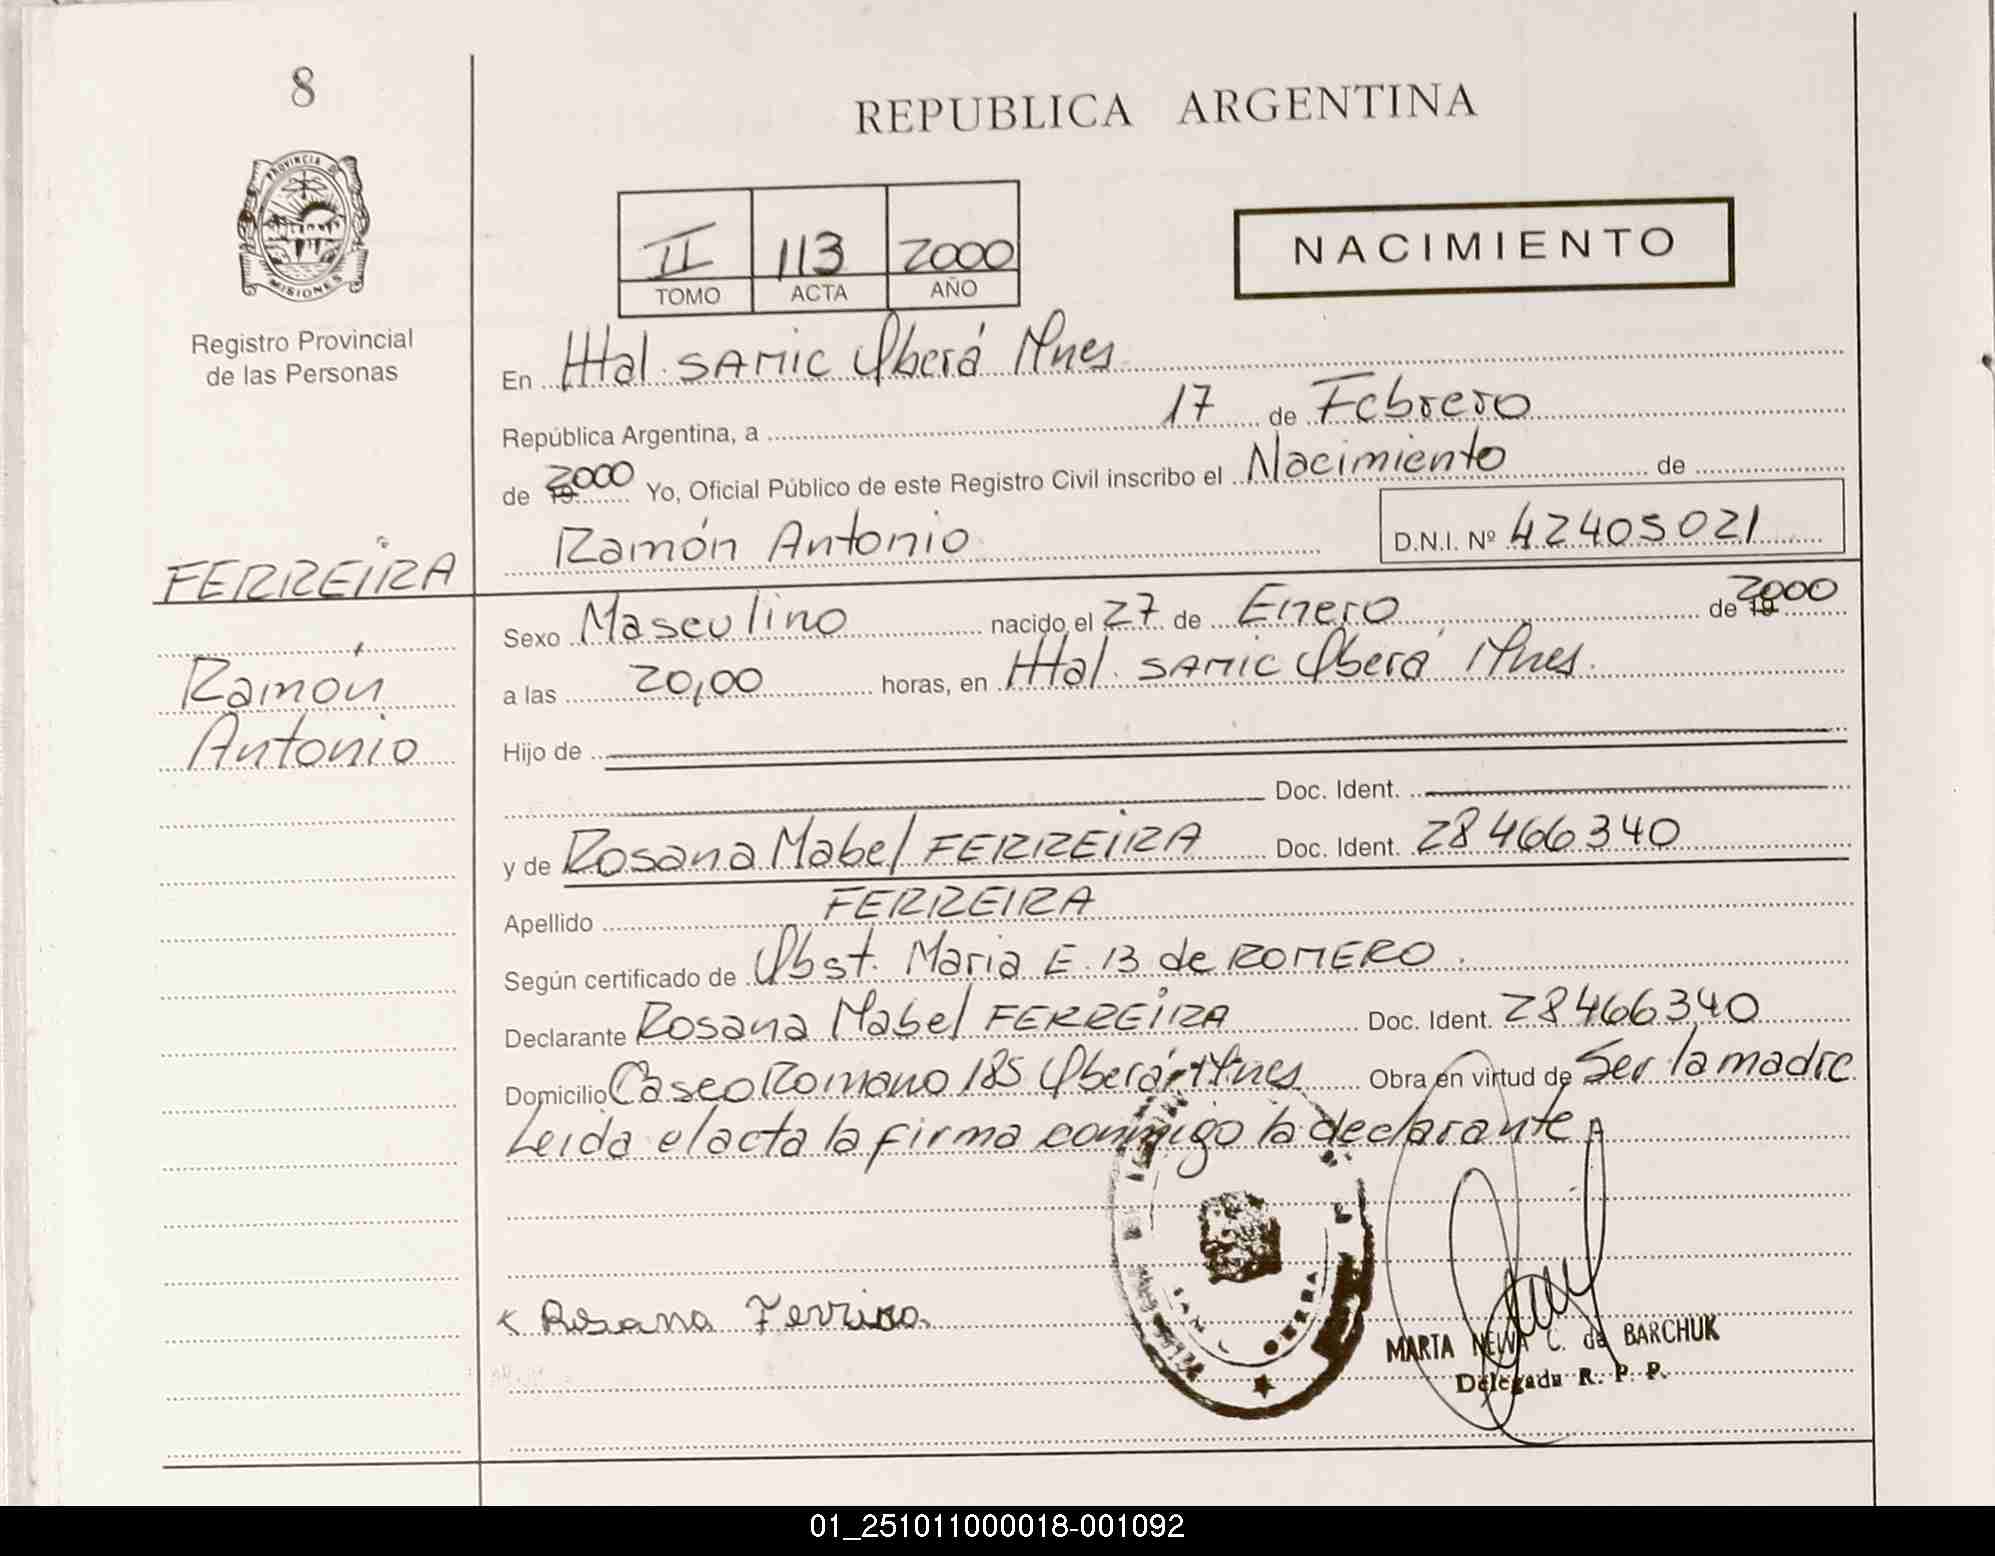 8
REPUBLICA ARGENTINA
PROVINCIA DE
MISIONES
Registro Provincial
de las Personas
II 113 2000
TOMO ACTA AÑO
NACIMIENTO
En Htal. SAMIC Oberá Mnes
República Argentina, a 17 de Febrero
de 2000 Yo, Oficial Público de este Registro Civil inscribo el Nacimiento de
Ramón Antonio D.N.I. Nº 42405021
FERREIRA
Ramón
Antonio
Sexo Masculino nacido el 27 de Enero de 2000
a las 20,00 horas, en Htal. SAMIC Oberá Mnes.
Hijo de
Doc. Ident.
y de Rosana Mabel FERREIRA Doc. Ident. 28466340
Apellido FERREIRA
Según certificado de Obst. Maria E. B de ROMERO.
Declarante Rosana Mabel FERREIRA Doc. Ident. 28466340
Domicilio Caseo Romano 185 Oberá Mnes Obra en virtud de Ser la madre
Leida el acta la firma conmigo la declarante
OBERA
MARTA NELVA C. de BARCHUK
Delegada R. P. P.
01_251011000018-001092